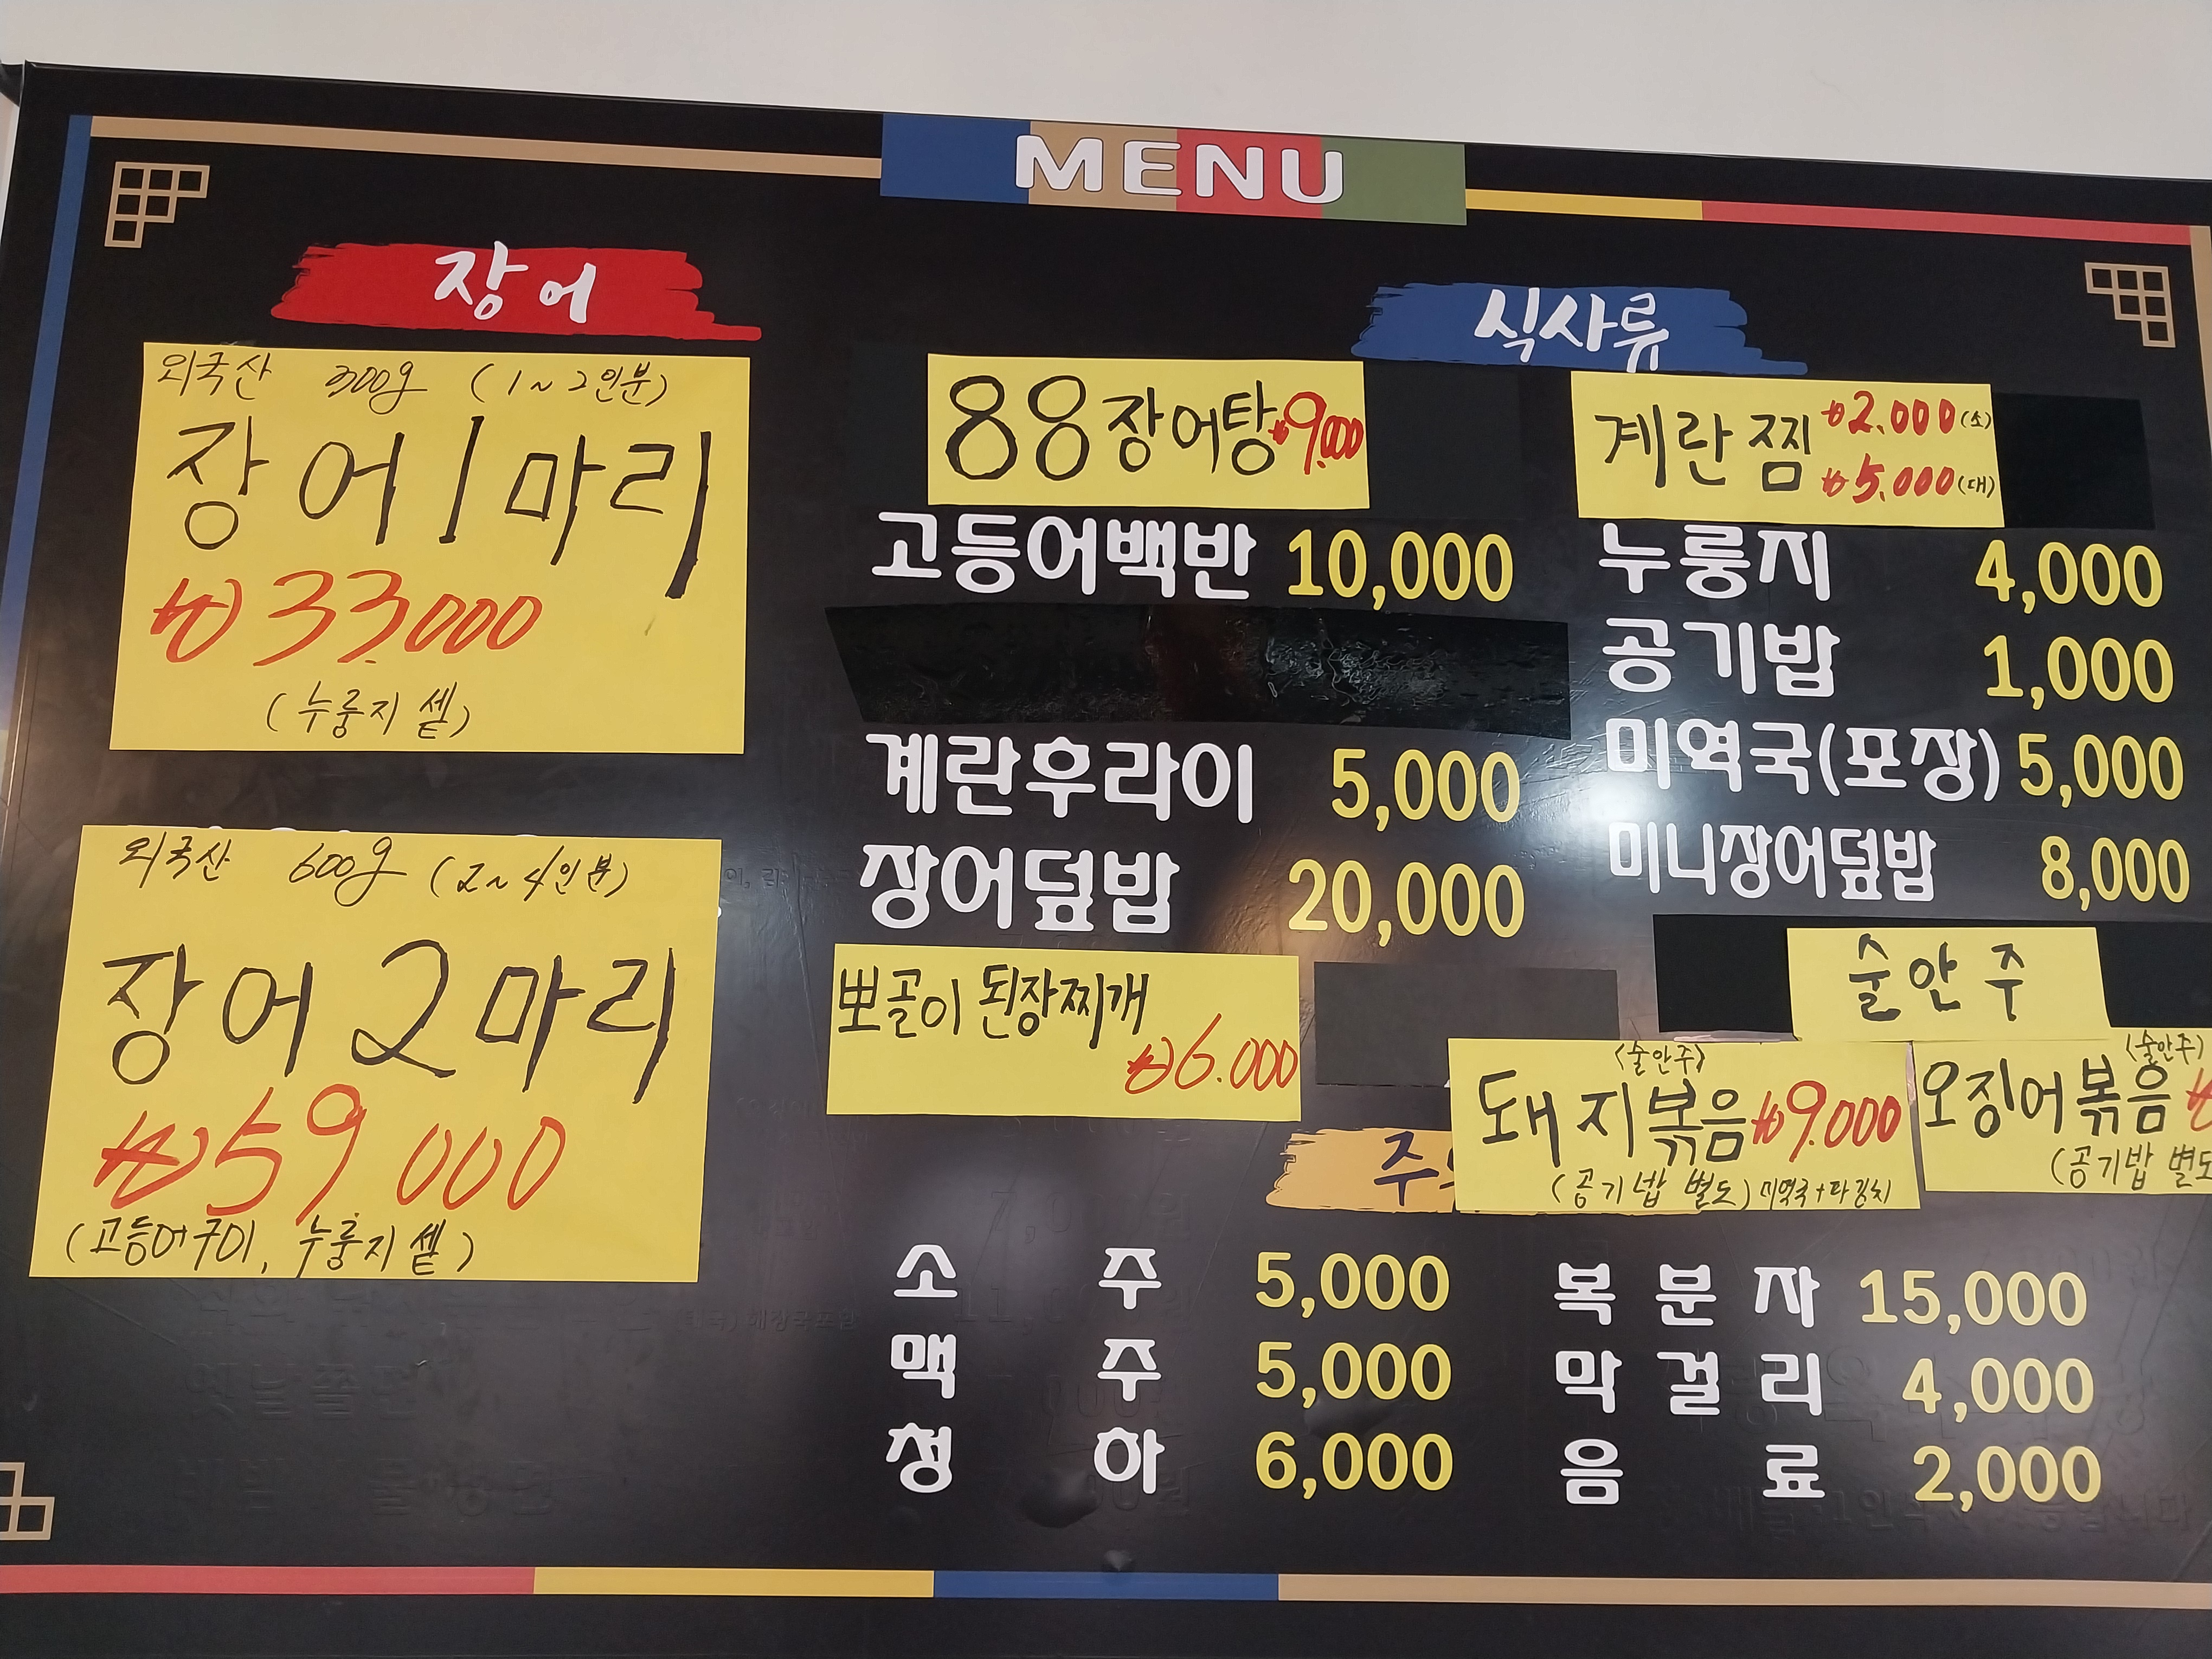 MENU
장어
외국산 300g (1~2인분)
장어 1마리
₩33.000
(누룽지 셑)
외국산 600g (2~4인분)
장어 2마리
₩59.000
(고등어구이, 누룽지 셑)
식사류
88장어탕 ₩9.000
고등어백반 10,000
계란후라이 5,000
장어덮밥 20,000
뽀골이 된장찌개
₩6.000
계란찜 ₩2.000(소)
₩5.000(대)
누룽지 4,000
공기밥 1,000
미역국(포장) 5,000
미니장어덮밥 8,000
술안주
<술안주>
돼지볶음 ₩9.000
(공기밥 별도) 미역국+파김치
<술안주>
오징어볶음 ₩
(공기밥 별도
소주 5,000
맥주 5,000
청하 6,000
복분자 15,000
막걸리 4,000
음료 2,000